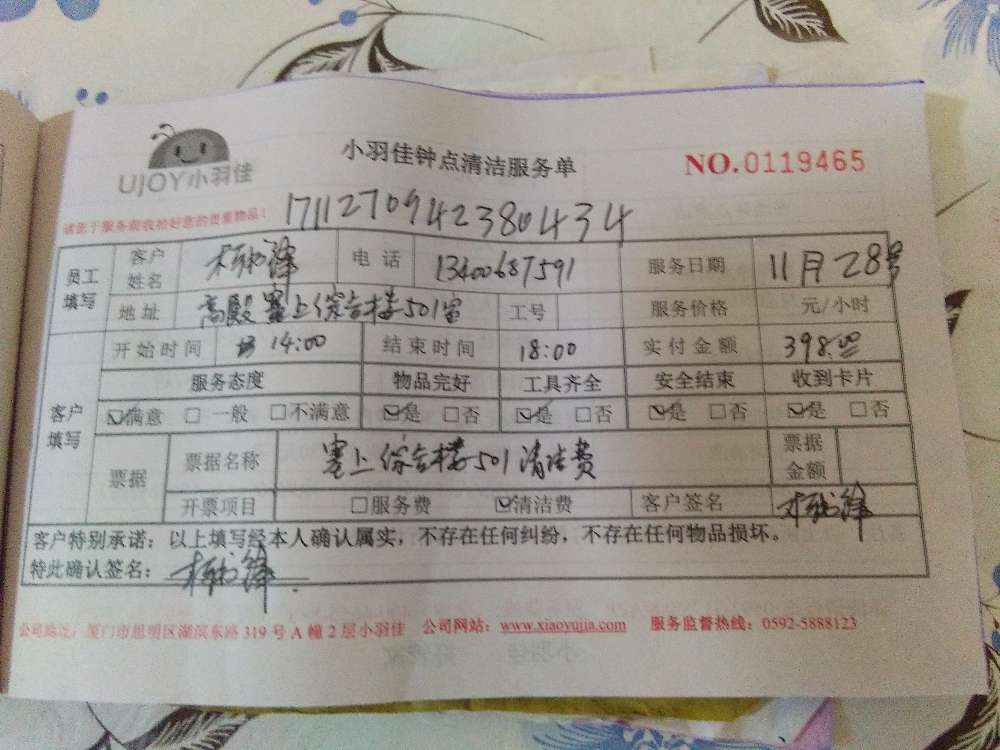 UJOY小羽佳
小羽佳钟点清洁服务单
NO.0119465
请您于服务前收拾好您的贵重物品!
1711270942380434
员工填写 客户姓名 电话 13400687591 服务日期 11月28号
地址 高殿 寨上综合楼501室 工号 服务价格 元/小时
开始时间 14:00 结束时间 18:00 实付金额 398.00
客户填写 服务态度 物品完好 工具齐全 安全结束 收到卡片
☑满意 □一般 □不满意 ☑是 □否 ☑是 □否 ☑是 □否 ☑是 □否
票据 票据名称 寨上综合楼501清洁费 票据金额
开票项目 □服务费 ☑清洁费 客户签名
客户特别承诺：以上填写经本人确认属实，不存在任何纠纷，不存在任何物品损坏。
特此确认签名：
公司地址：厦门市思明区湖滨东路319号A幢2层小羽佳 公司网站：www.xiaoyujia.com 服务监督热线：0592-5888123